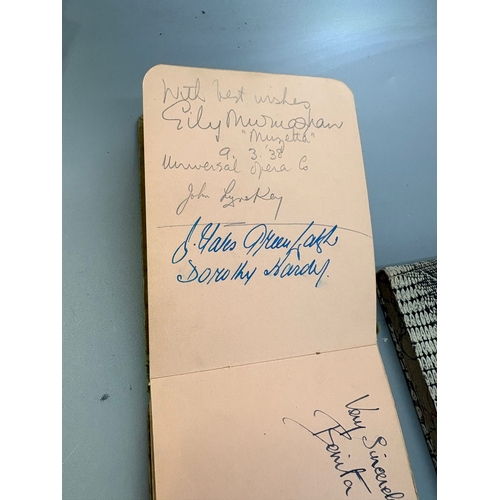 With best wishes
Eily Murnaghan
"Muzetta"
9. 3. '38
Universal Opera Co
John Lynskey
J. Yates Greenhalgh
Dorothy Hardy.
Very Sincerely
Benita